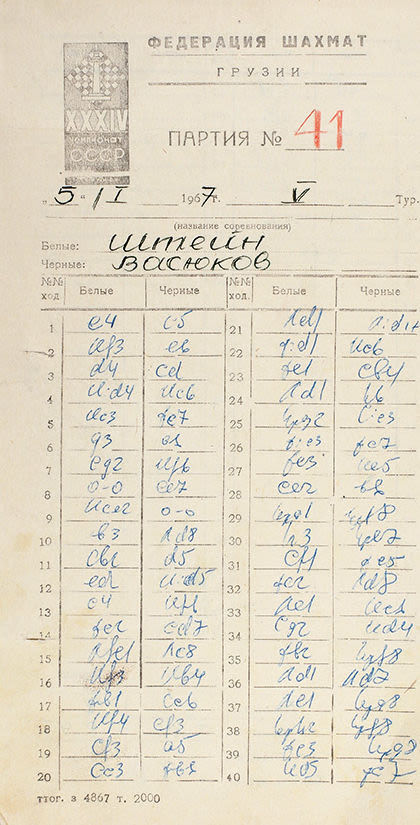 ФЕДЕРАЦИЯ ШАХМАТ
ГРУЗИИ
XXXIV
ЧЕМПИОНАТ
СССР
ПАРТИЯ № 41
„5“ I 1967г. V Тур.
(название соревнования)
Белые: Штейн
Черные: Васюков
№№ ход Белые Черные №№ ход. Белые Черные
1 e4 c5 21 Лd1 Л:d1+
2 Кf3 e6 22 Ф:d1 Кc6
3 d4 cd 23 Фe1 Сb4
4 К:d4 Кc6 24 Лd1 h6
5 Кc3 Фc7 25 Крg2 С:c3
6 g3 a6 26 Ф:c3 Фe7
7 Сg2 Кf6 27 Фe3 Кe5
8 0-0 Сe7 28 Сe2 b6
9 Кce2 0-0 29 Крg1 Крf8
10 b3 Лd8 30 h3 Кed7
11 Сb2 d5 31 Сf1 Фc5
12 ed К:d5 32 Фc2 Лd8
13 c4 Кf6 33 Лe1
14 Фc2 Сd7 34 Сg2
15 Лfe1 Лc8 35 Фb2 Крg8
16 Кf3 Кb4 36 Лd1 Лd7
17 Фb1 Сc6 37 Лe1 Крg8
18 Кf4 Сf3 38 Крh2 Крf8
19 Сf3 a5 39 Фe3 Крg8
20 Сc3 Фb8 40 Кd5 Фc7
ттог. з 4867 т. 2000